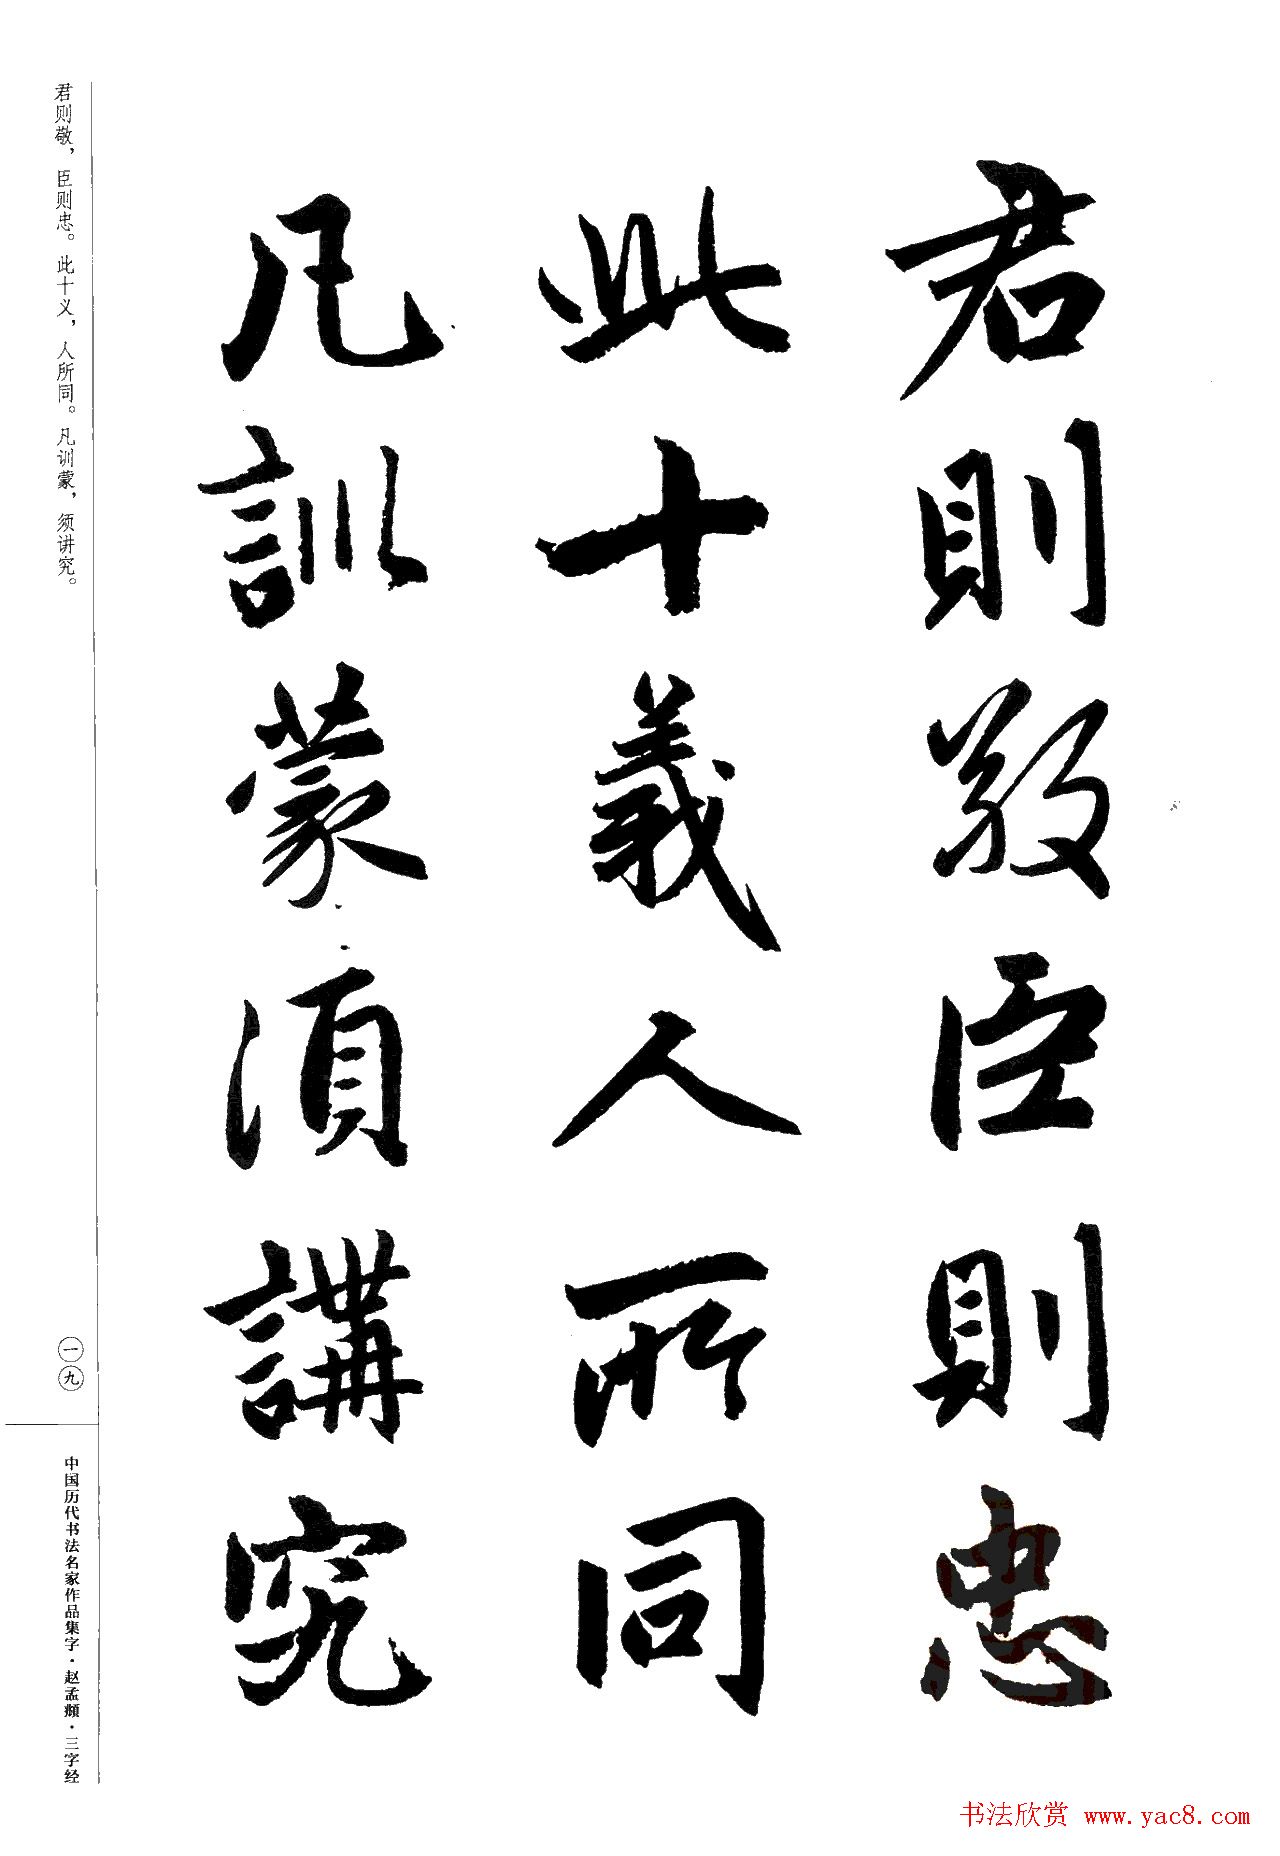 君則敬臣則忠
此十義人所同
凡訓蒙須講究
君则敬，臣则忠。此十义，人所同。凡训蒙，须讲究。
一九
中国历代书法名家作品集字·赵孟頫·三字经
书法欣赏 www.yac8.com